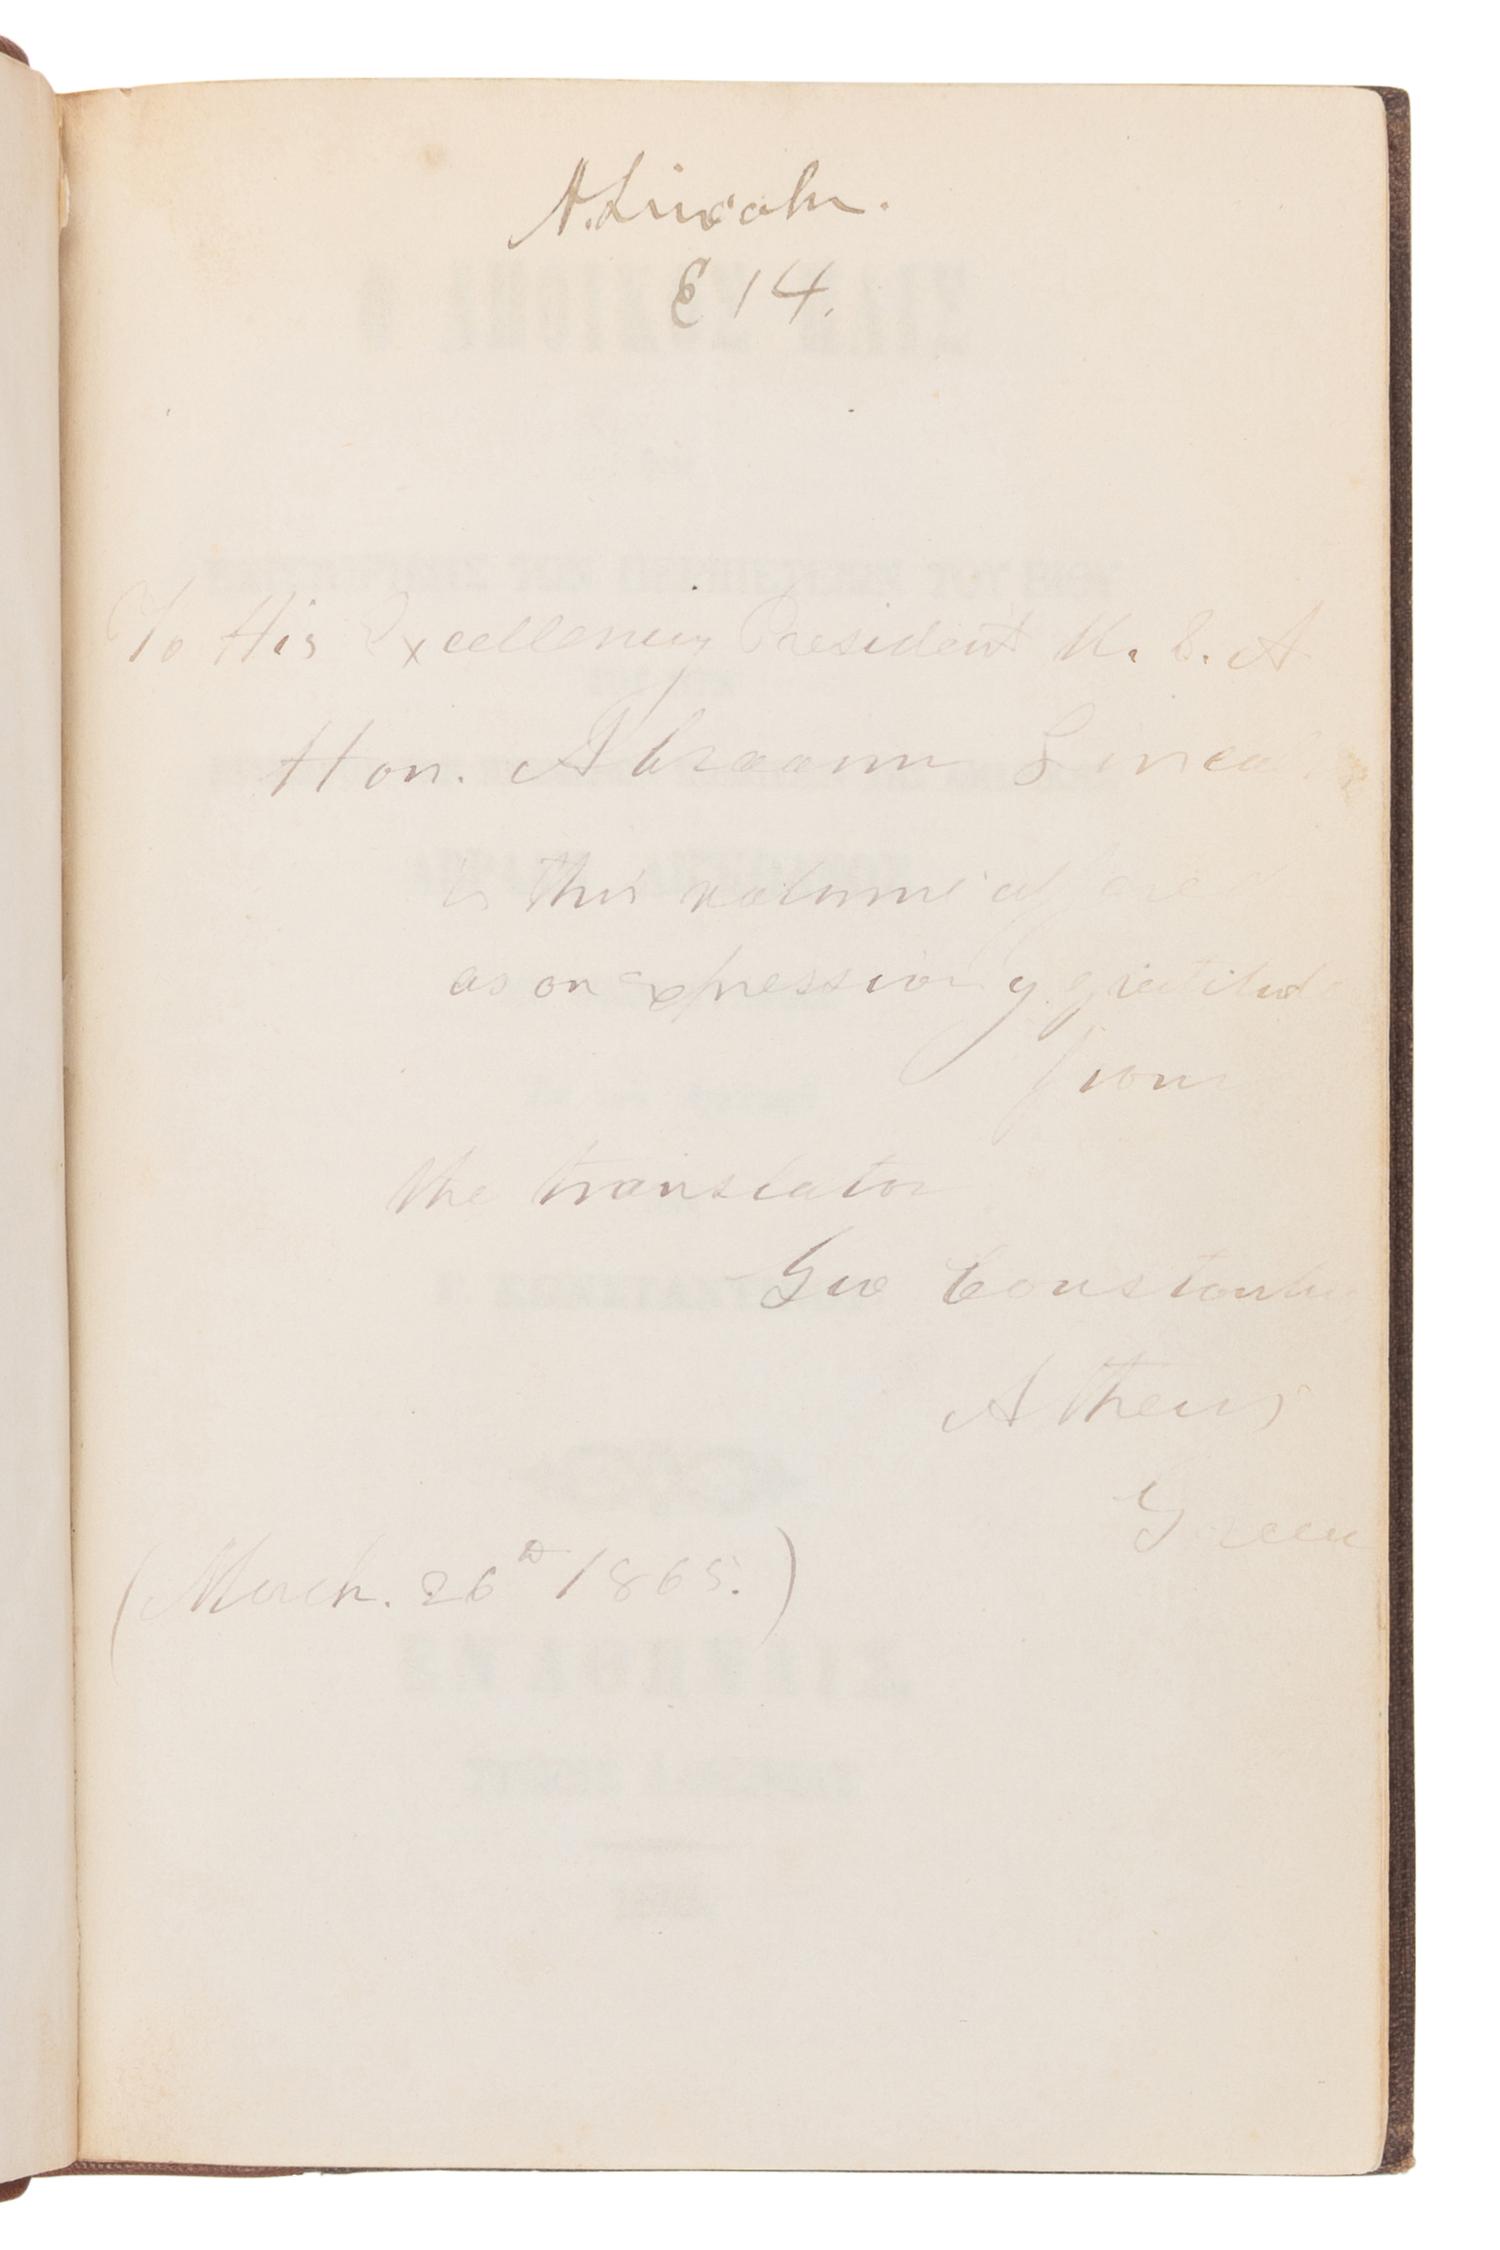 A. Lincoln.
E 14.
To His Excellency President U. S. A
Hon. Abraam Lincol
is this volume offered
as an expression of gratitude
from
the translator
Geo Constantin
Athens
Greece
(March. 26th 1865.)
Ο ΑΠΟΙΚΟΣ ΠΑΙΣ
ΤΟΥ ΒΙΟΥ
ΕΝ ΑΘΗΝΑΙΣ